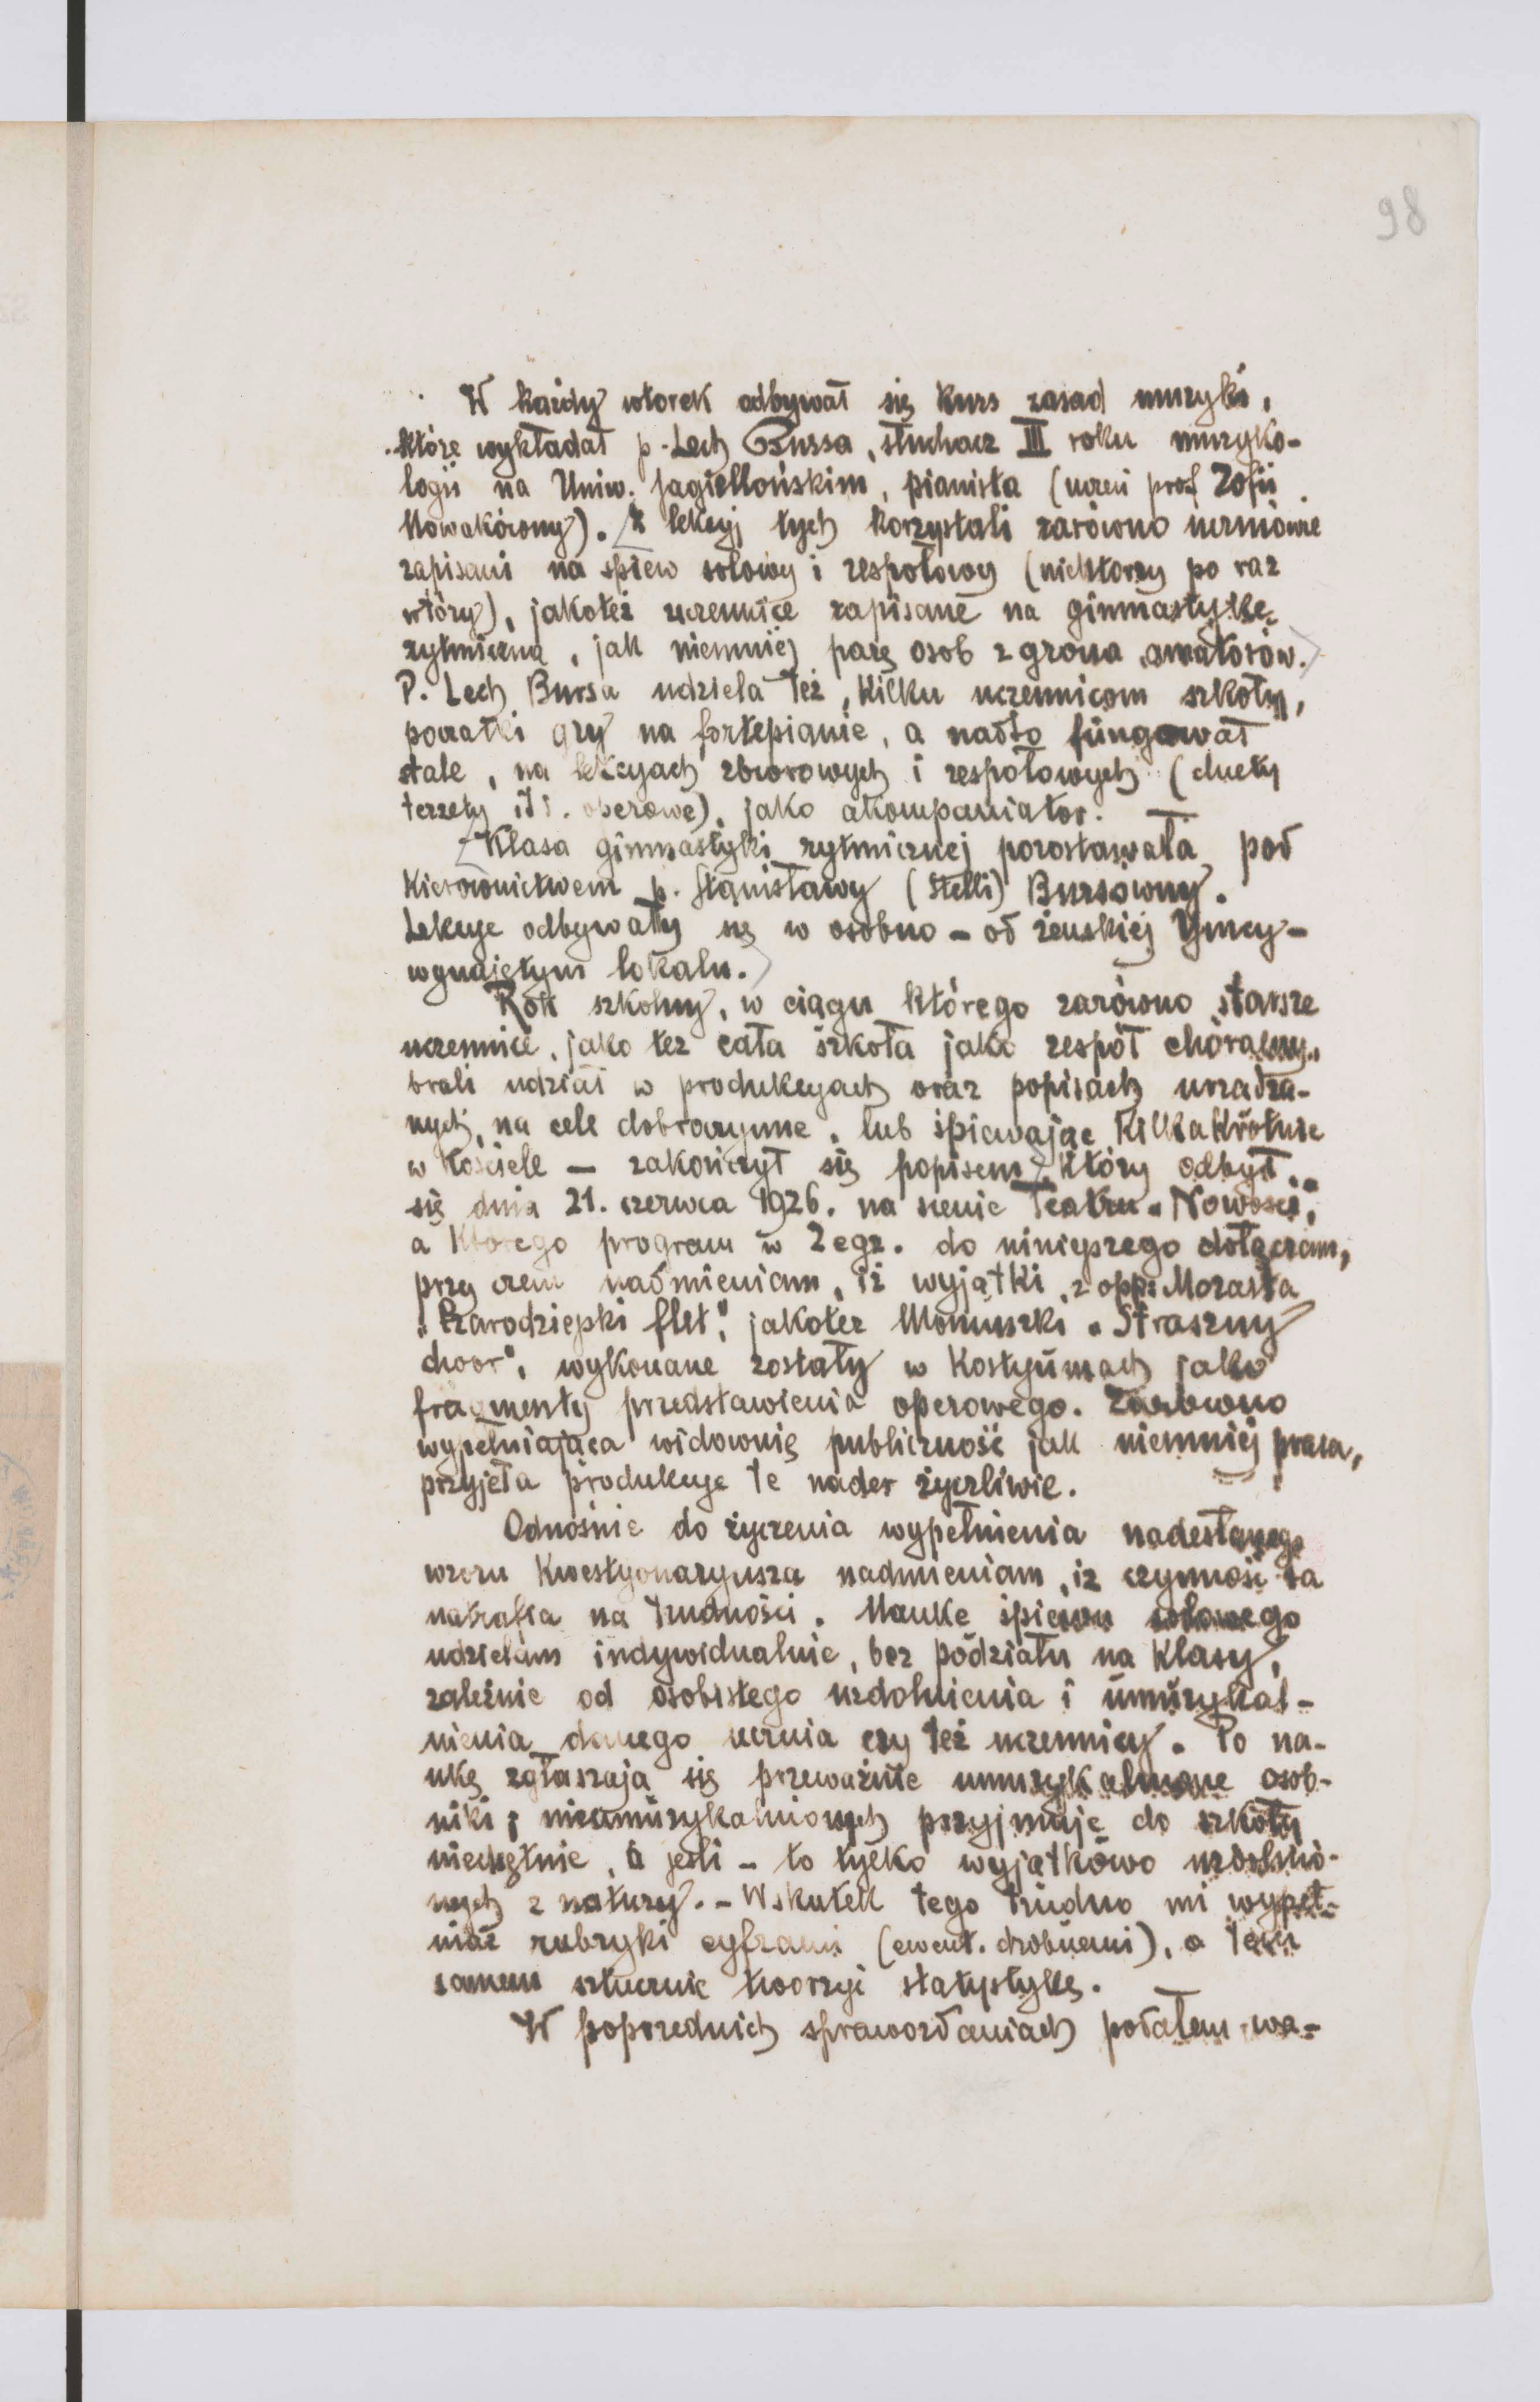 98
W każdy wtorek odbywał się kurs zasad muzyki,
które wykładał p. Lech Bursa, słuchacz III roku muzyko-
logii na Uniw. Jagiellońskim, pianista (uczeń prof Zofii
Nowakówny). [Z lekcyj tych korzystali zarówno uczniowie
zapisani na śpiew solowy i zespołowy (niektórzy po raz
wtóry), jakoteż uczennice zapisane na gimnastykę
rytmiczną, jak niemniej parę osób z grona amatorów.]
P. Lech Bursa udziela też, kilku uczennicom szkoły,
początki gry na fortepianie, a nadto fungował
stale, na lekcyach zbiorowych i zespołowych (duety
terzety itd. operowe), jako akompaniator. —
[Klasa gimnastyki rytmicznej pozostawała pod
kierownictwem p. Stanisławy (Stelli) Bursówny.
Lekcye odbywały się w osobno – od żeńskiej Ymcy –
wynajętym lokalu.]
Rok szkolny, w ciągu którego zarówno starsze
uczennice, jako też cała szkoła jako zespół chóralny,
brali udział w produkcyach oraz popisach urządza-
nych, na cele dobroczynne, lub śpiewając kilkakrotnie
w kościele – zakończył się popisem, który odbył
się dnia 21. czerwca 1926. na scenie Teatru „Nowości",
a którego program w 2 egz. do niniejszego dołączam,
przy czem nadmieniam, iż wyjątki z opp: Mozarta
„Czarodziejski flet", jakoteż Moniuszki „Straszny
dwór", wykonane zostały w kostyumach jako
fragmenty przedstawienia operowego. Zarówno
wypełniająca widownię publiczność jak niemniej prasa,
przyjęła produkcye te nader życzliwie.
Odnośnie do życzenia wypełnienia nadesłanego
wzoru kwestyonaryusza nadmieniam, iż czynność ta
natrafia na trudności. Naukę śpiewu solowego
udzielam indywidualnie, bez podziału na klasy,
zależnie od osobistego uzdolnienia i umuzykal-
nienia danego ucznia czy też uczennicy. Po na-
ukę zgłaszają się przeważnie umuzykalnione osob-
niki; nieumuzykalnionych przyjmuję do szkoły
niechętnie, a jeśli – to tylko wyjątkowo uzdolnio-
nych z natury. – Wskutek tego trudno mi wypeł-
niać rubryki cyframi (ewent. drobnemi), a tem
samem sztucznie tworzyć statystykę.
W poprzednich sprawozdaniach podałem wa-